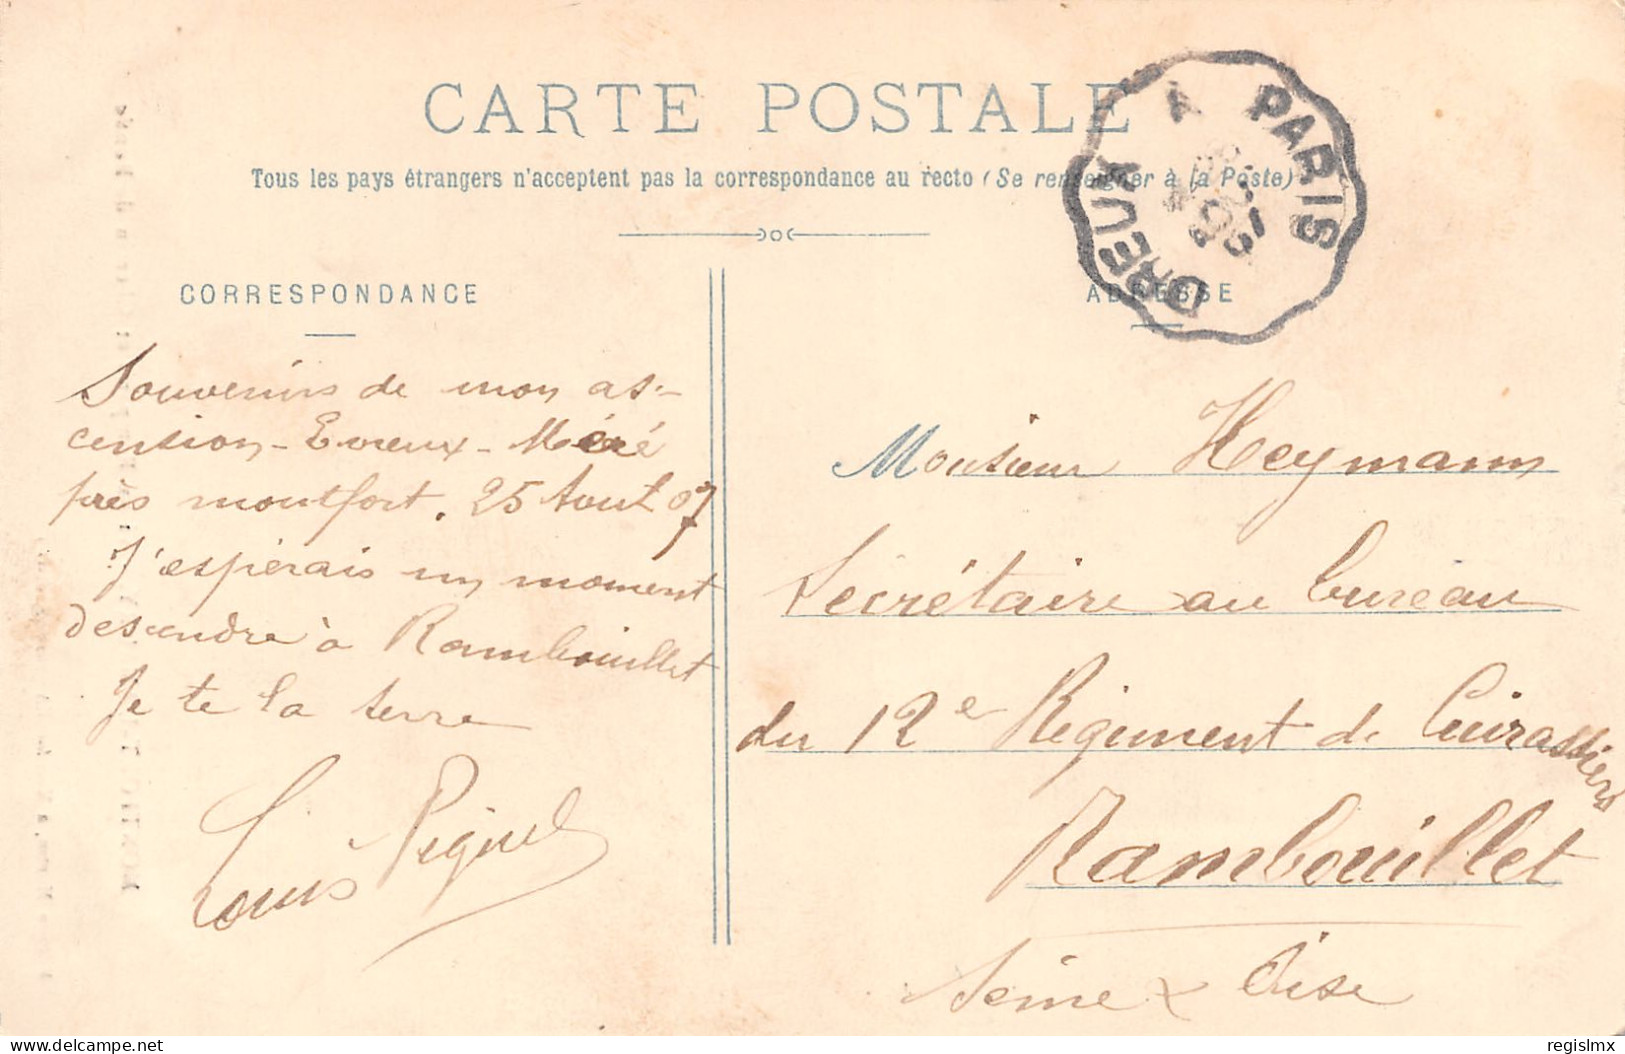 CARTE POSTALE
Tous les pays étrangers n'acceptent pas la correspondance au recto (Se renseigner à la Poste)
DREUX A PARIS
CORRESPONDANCE
ADRESSE
Souvenirs de mon as-
cension - Evreux - Méré
près montfort. 25 Aout 07
J'espérais un moment
descendre à Rambouillet
Je te la serre
Louis
Monsieur Heymann
Secrétaire au bureau
du 12e Régiment de Cuirassiers
Rambouillet
Seine & Oise
regislmx
delcampe.net